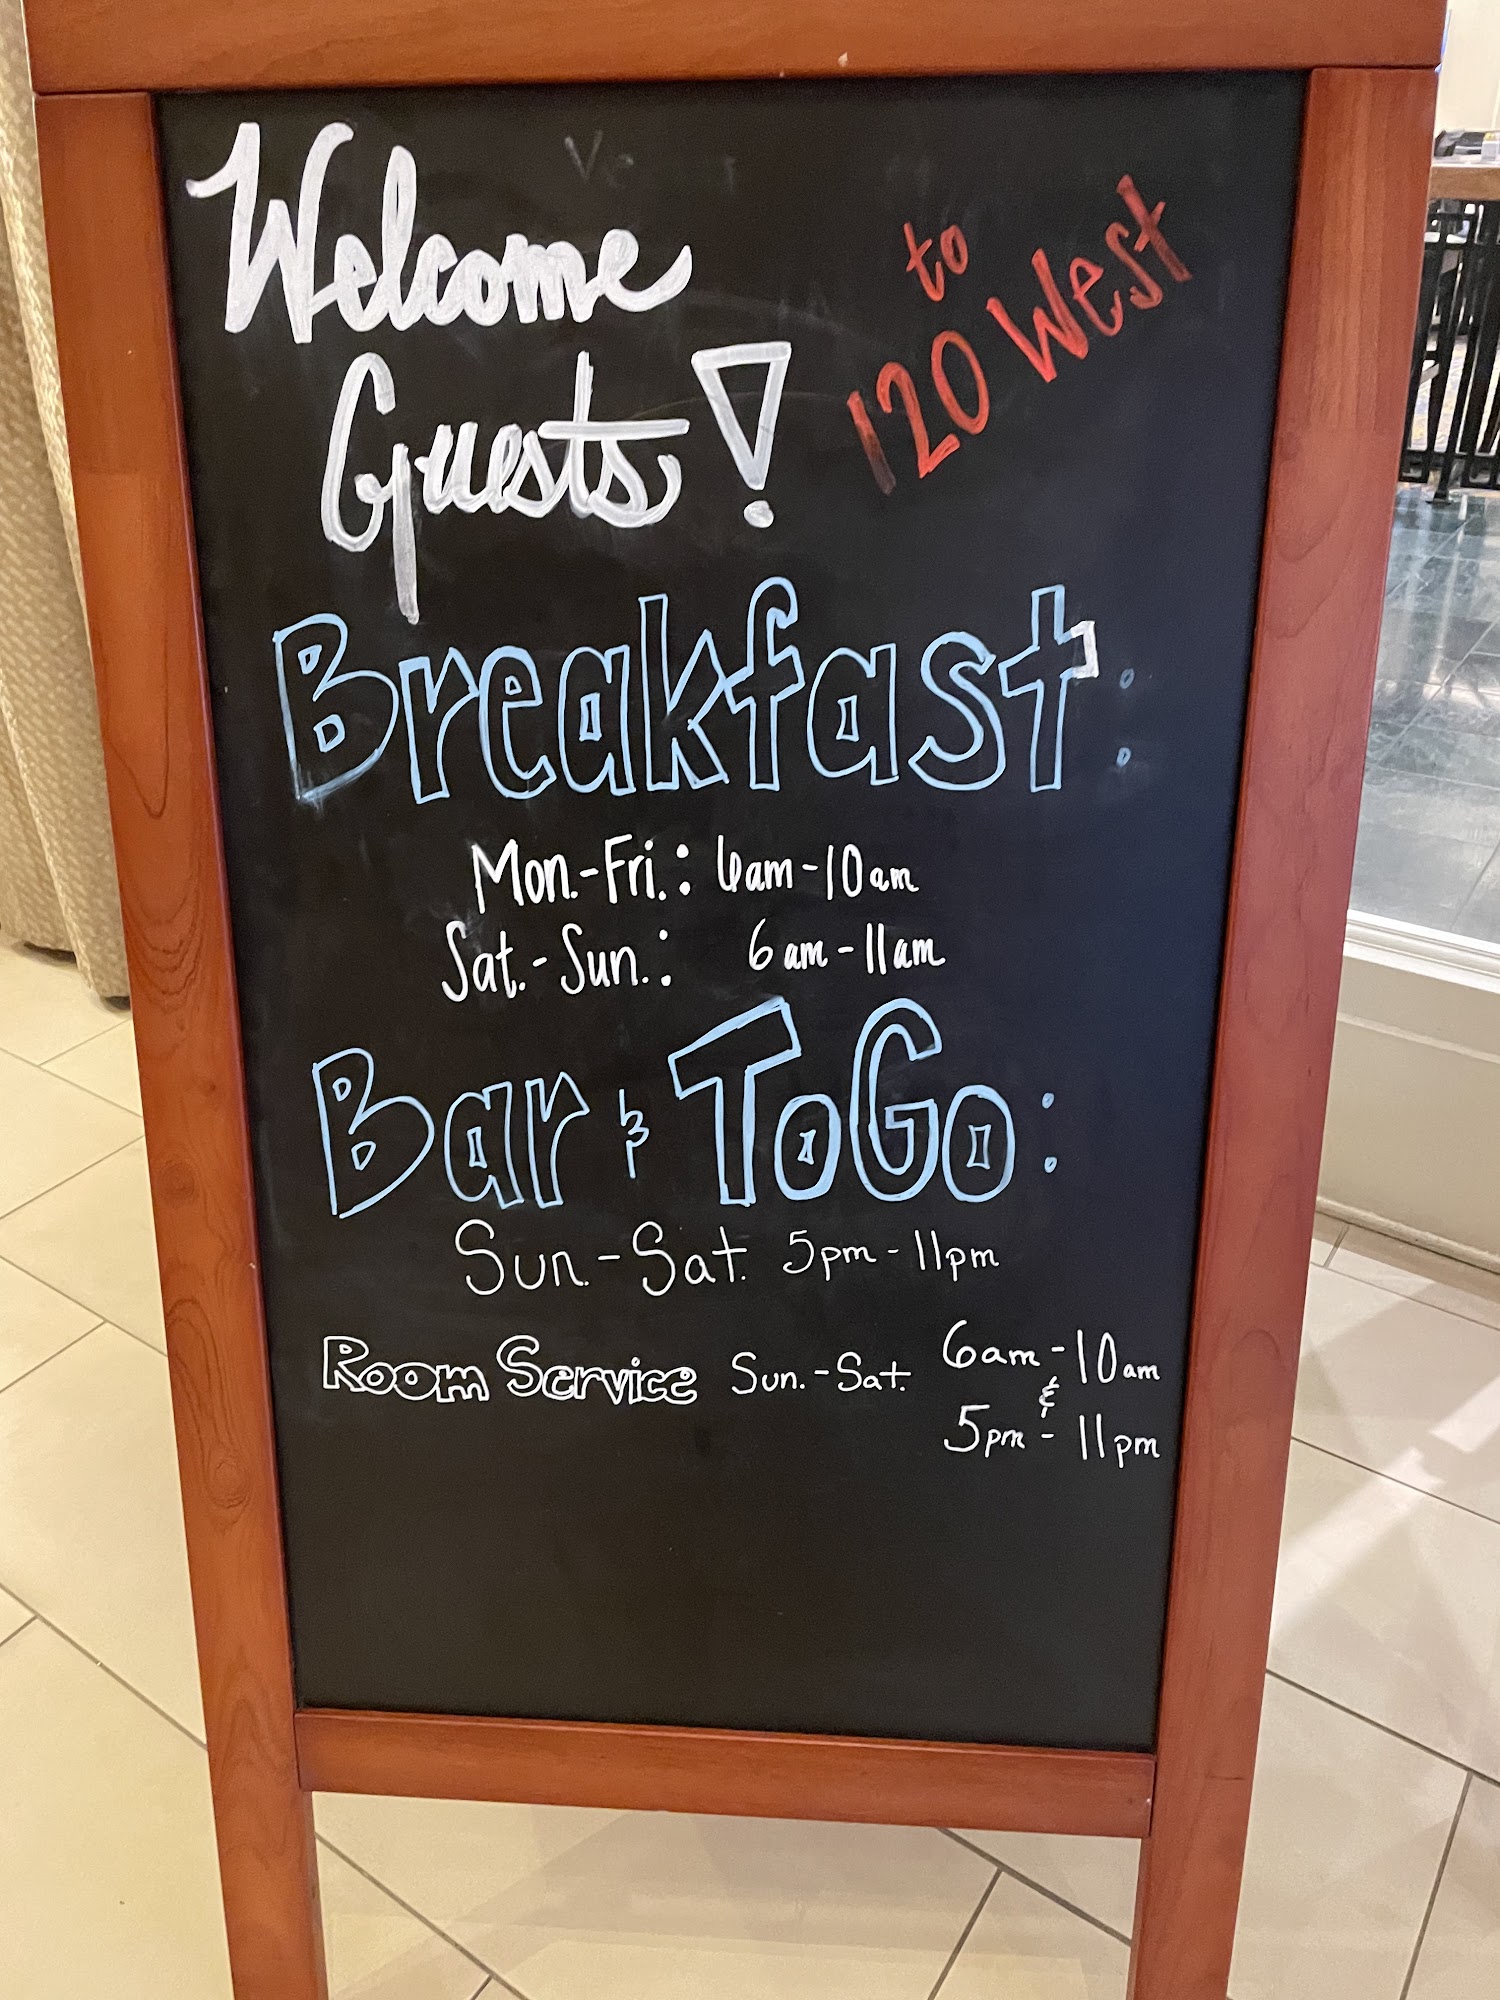 Welcome
Guests!
to
120 West
Breakfast:
Mon.-Fri.: 6am-10am
Sat.-Sun.: 6am-11am
Bar & ToGo:
Sun.-Sat. 5pm-11pm
Room Service Sun.-Sat. 6am-10am
&
5pm-11pm